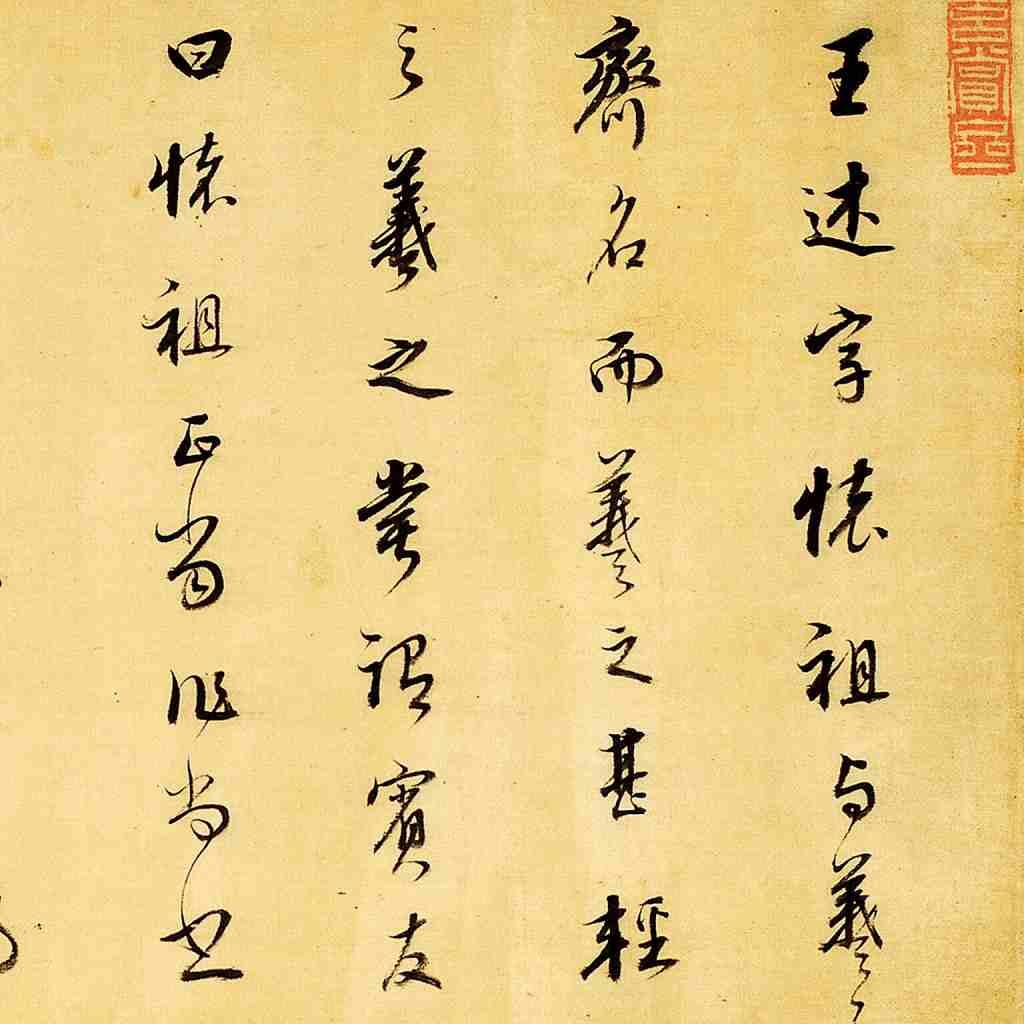 王述字懷祖与羲
齊名而羲之甚輕
之羲之嘗謂賓友
曰懷祖正當作尚書